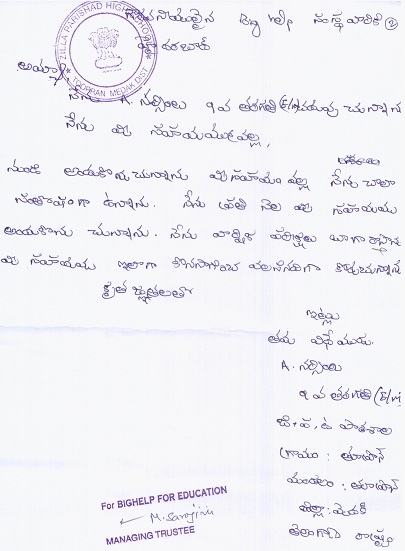 ZILLA PARISHAD HIGH SCHOOL
TOOPRAN MEDAK DIST
గౌరవనియులైన Big help సంస్థ వారికి ②
అయ్యా,
నేను A. నర్సింలు 9 వ తరగతి (E/M) చదువు చున్నాను
నేను మీ సహాయము వల్ల,
నుండి అందుకొనుచున్నాను మీ సహాయం వల్ల నేను చాలా
సంతోషంగా ఉన్నాను. నేను ప్రతి నెల మీ సహాయము
అందుకొను చున్నాను. నేను వార్షిక పరీక్షలు బాగా రాస్తాను
మీ సహాయము ఇలాగా కొనసాగించ వలసినదిగా కోరుచున్నాను
కృతజ్ఞతలతో
ఇట్లు
తమ విధేయుడు.
A. నర్సింలు
9 వ తరగతి (E/M)
జి.ప.ఉ పాఠశాల
గ్రామం : తూప్రాన్
మండలం : తూప్రాన్
జిల్లా : మెదక్
తెలంగాణ రాష్ట్రం
For BIGHELP FOR EDUCATION
M. Sarojini
MANAGING TRUSTEE